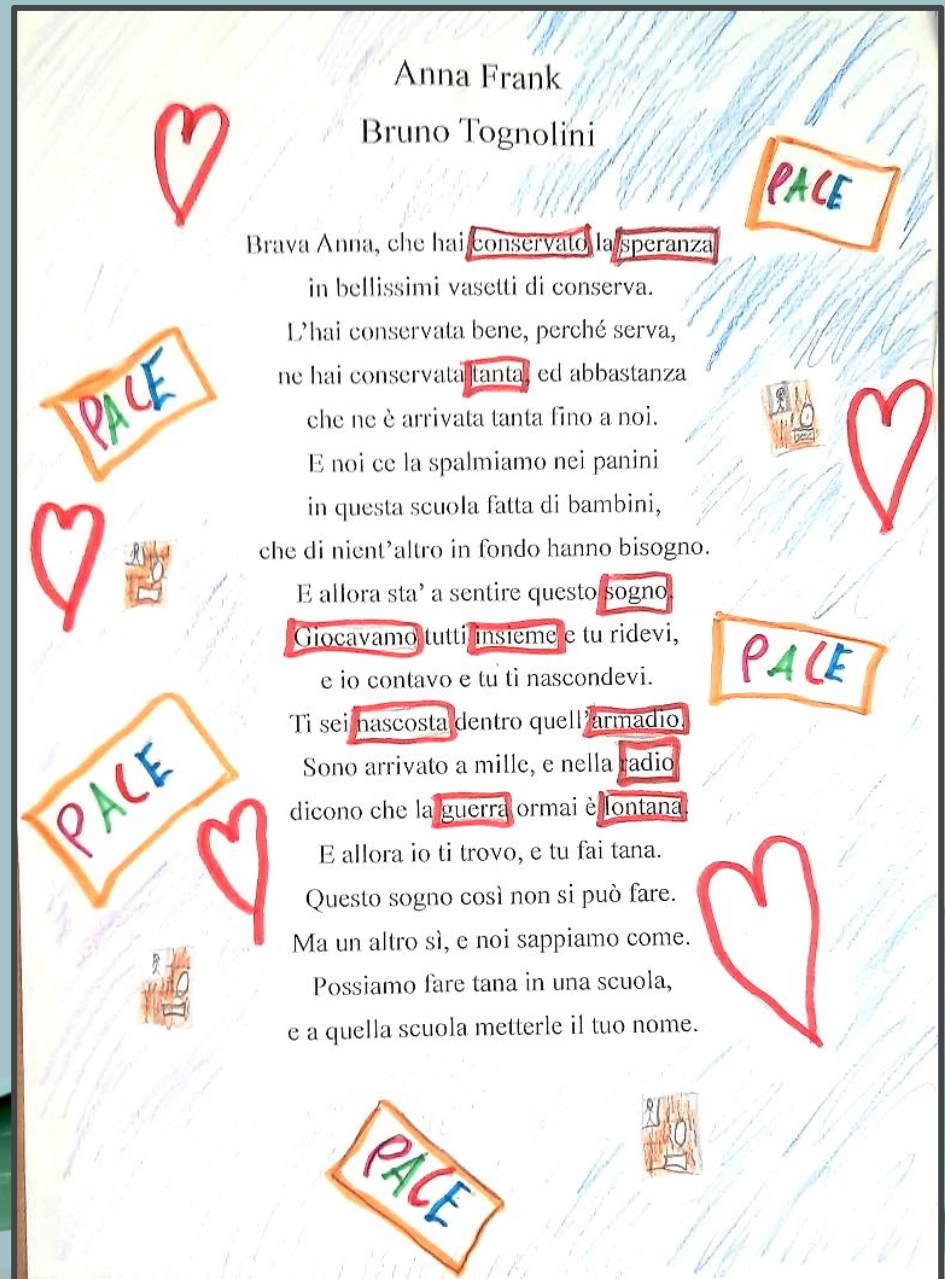 Anna Frank
Bruno Tognolini
PACE
Brava Anna, che hai conservato la speranza
in bellissimi vasetti di conserva.
L'hai conservata bene, perché serva,
ne hai conservata tanta, ed abbastanza
che ne è arrivata tanta fino a noi.
E noi ce la spalmiamo nei panini
in questa scuola fatta di bambini,
che di nient'altro in fondo hanno bisogno.
E allora sta' a sentire questo sogno.
Giocavamo tutti insieme e tu ridevi,
e io contavo e tu ti nascondevi.
Ti sei nascosta dentro quell'armadio.
Sono arrivato a mille, e nella radio
dicono che la guerra ormai è lontana.
E allora io ti trovo, e tu fai tana.
Questo sogno così non si può fare.
Ma un altro sì, e noi sappiamo come.
Possiamo fare tana in una scuola,
e a quella scuola metterle il tuo nome.
PACE
PACE
PACE
PACE